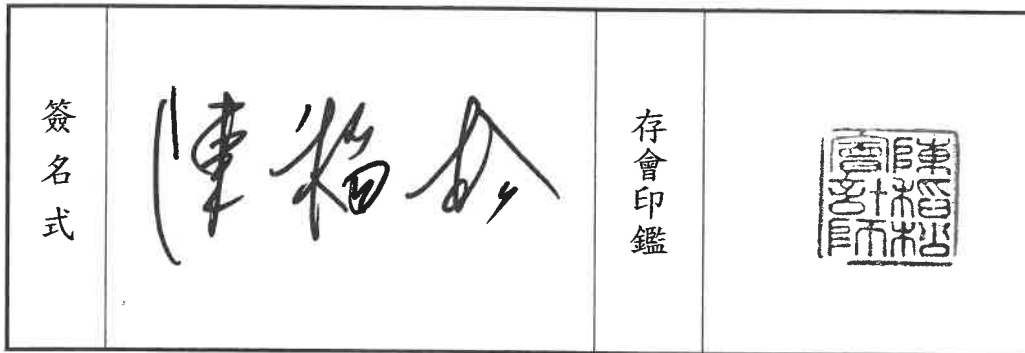 簽名式
陳稻松
存會印鑑
陳稻松
會計師